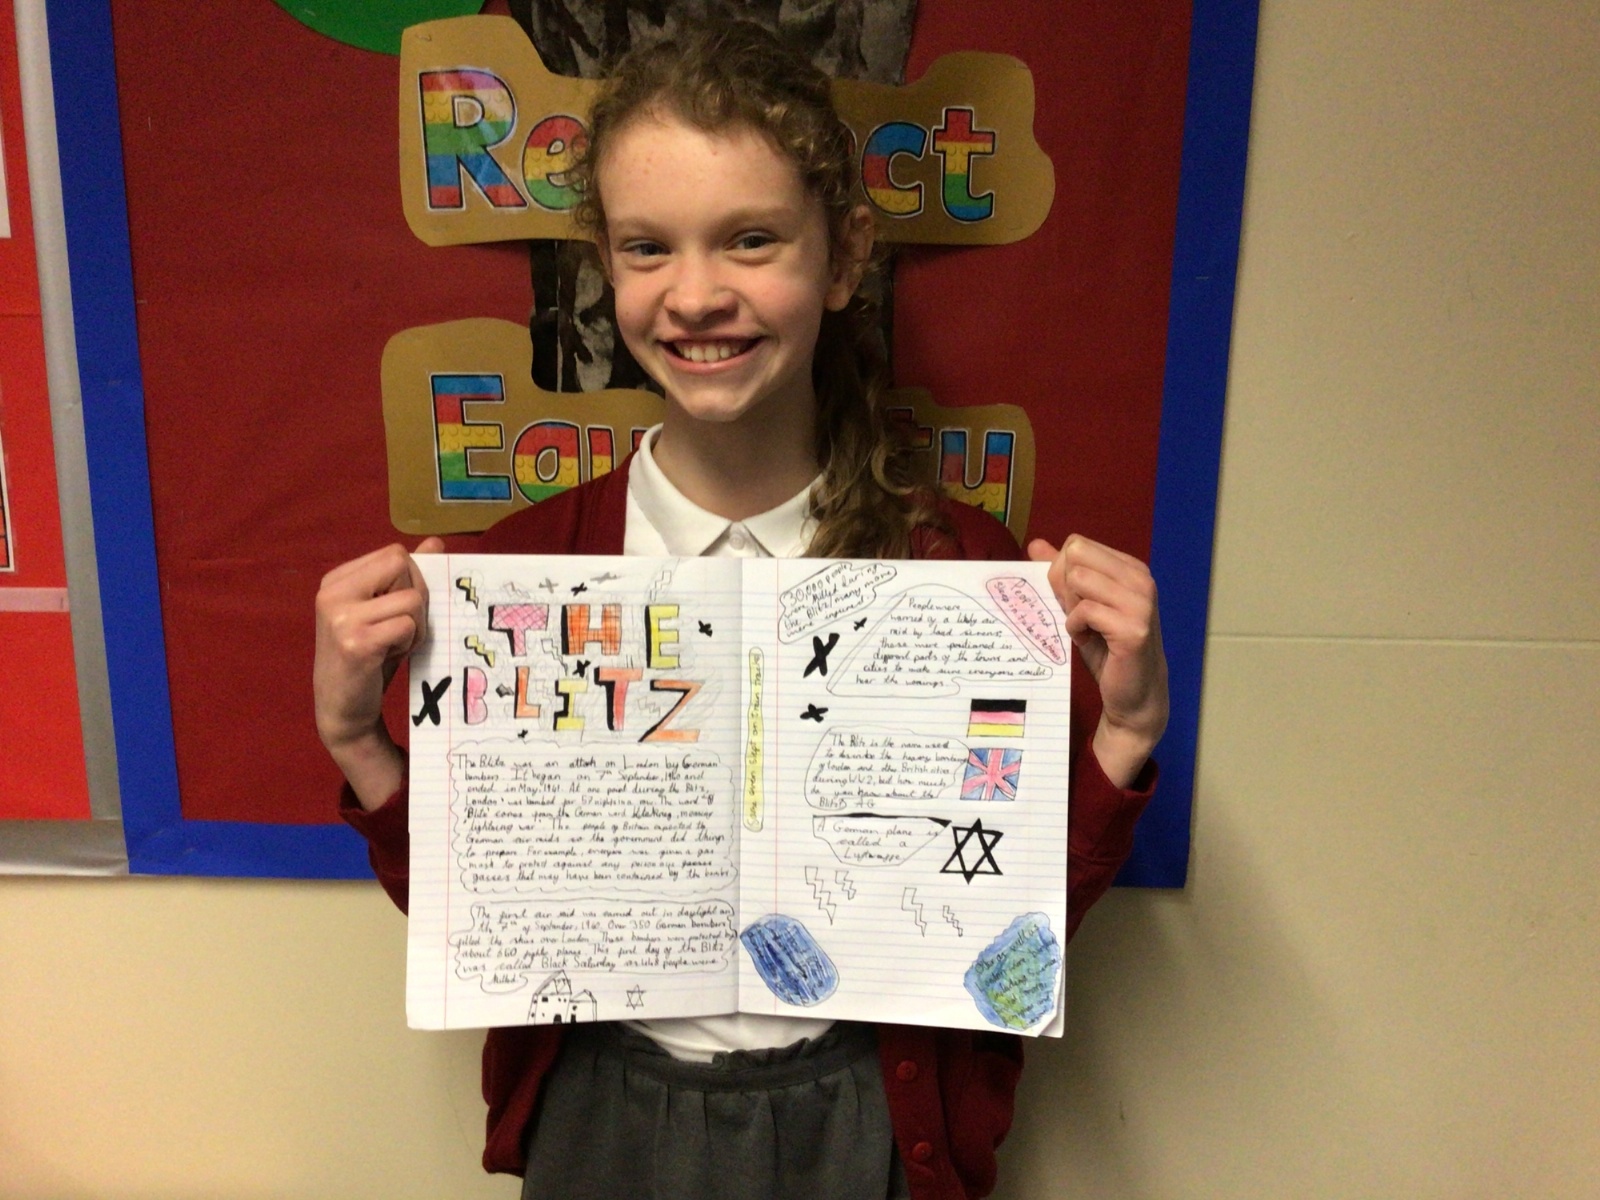 Re ct
Equ ty
THE
BLITZ
The Blitz was an attack on London by German
bombers. It began on 7th September, 1940 and
ended in May, 1941. At one point during the Blitz,
London was bombed for 57 nights in a row. The word
'Blitz' comes from the German word
'lightning war'. The people of Britain expected the
German air raids so the government did things
to prepare. For example, everyone was given a gas
mask to protect against any poisonous
gasses that may have been contained by the bombs
The first air raid was carried out in daylight on
the 7th of September, 1940. Over 350 German bombers
filled the skies over London. These bombers were protected by
about 650 fighter planes. This first day of the Blitz
was called Black Saturday as people were
killed
Some even slept on train tracks
30,000 people
were killed during
the Blitz/many more
were injured.
People were
warned of a likely air
raid by loud sirens,
these were positioned in
different parts of the towns and
cities to make sure everyone could
hear the warnings.
People had to
sleep in tube stations
The Blitz is the name used
to describe the heavy bombing
of London and other British cities
during WW2, but how much
do you know about the
Blitz? AG
A German plane is
called a
Luftwaffe